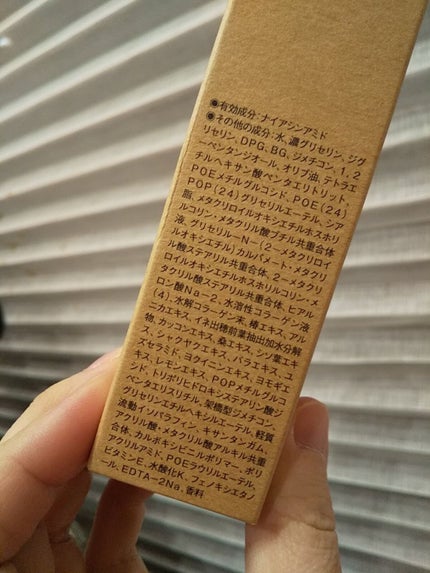 ◉有効成分:ナイアシンアミド
◉その他の成分:水、濃グリセリン、ジグ
リセリン、DPG、BG、ジメチコン、1,2
ーペンタンジオール、オリブ油、テトラエ
チルヘキサン酸ペンタエリトリット、
POEメチルグルコシド、POE(24)
POP(24)グリセリルエーテル、シア
脂、メタクリロイルオキシエチルホスホリル
コリン・メタクリル酸ブチル共重合体
液、グリセリル-N-(2-メタクリロイ
ルオキシエチル)カルバメート・メタクリ
ル酸ステアリル共重合体、2-メタクリ
ロイルオキシエチルホスホリルコリン・メ
タクリル酸ステアリル共重合体、ヒアル
ロン酸Na-2、水溶性コラーゲン液
(4)、水解コラーゲン末、椿エキス、アル
ニカエキス、イネ出穂前葉抽出加水分解
物、カッコンエキス、桑エキス、シソ葉エキ
ス、シャクヤクエキス、バラエキス、ユ
ズセラミド、ヨクイニンエキス、ヨモギエ
キス、レモンエキス、POPメチルグルコ
シド、トリポリヒドロキシステアリン酸ジ
ペンタエリスリチル、架橋型ジメチコン、
グリセリンエチルヘキシルエーテル、軽質
流動イソパラフィン、キサンタンガム、
アクリル酸・メタクリル酸アルキル共重
合体、カルボキシビニルポリマー、ポリ
アクリルアミド、POEラウリルエーテル、
ビタミンE、水酸化K、フェノキシエタノ
ール、EDTA-2Na、香料